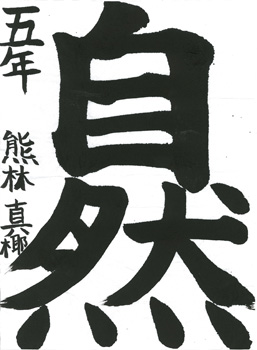 自然
五年
熊林真椰